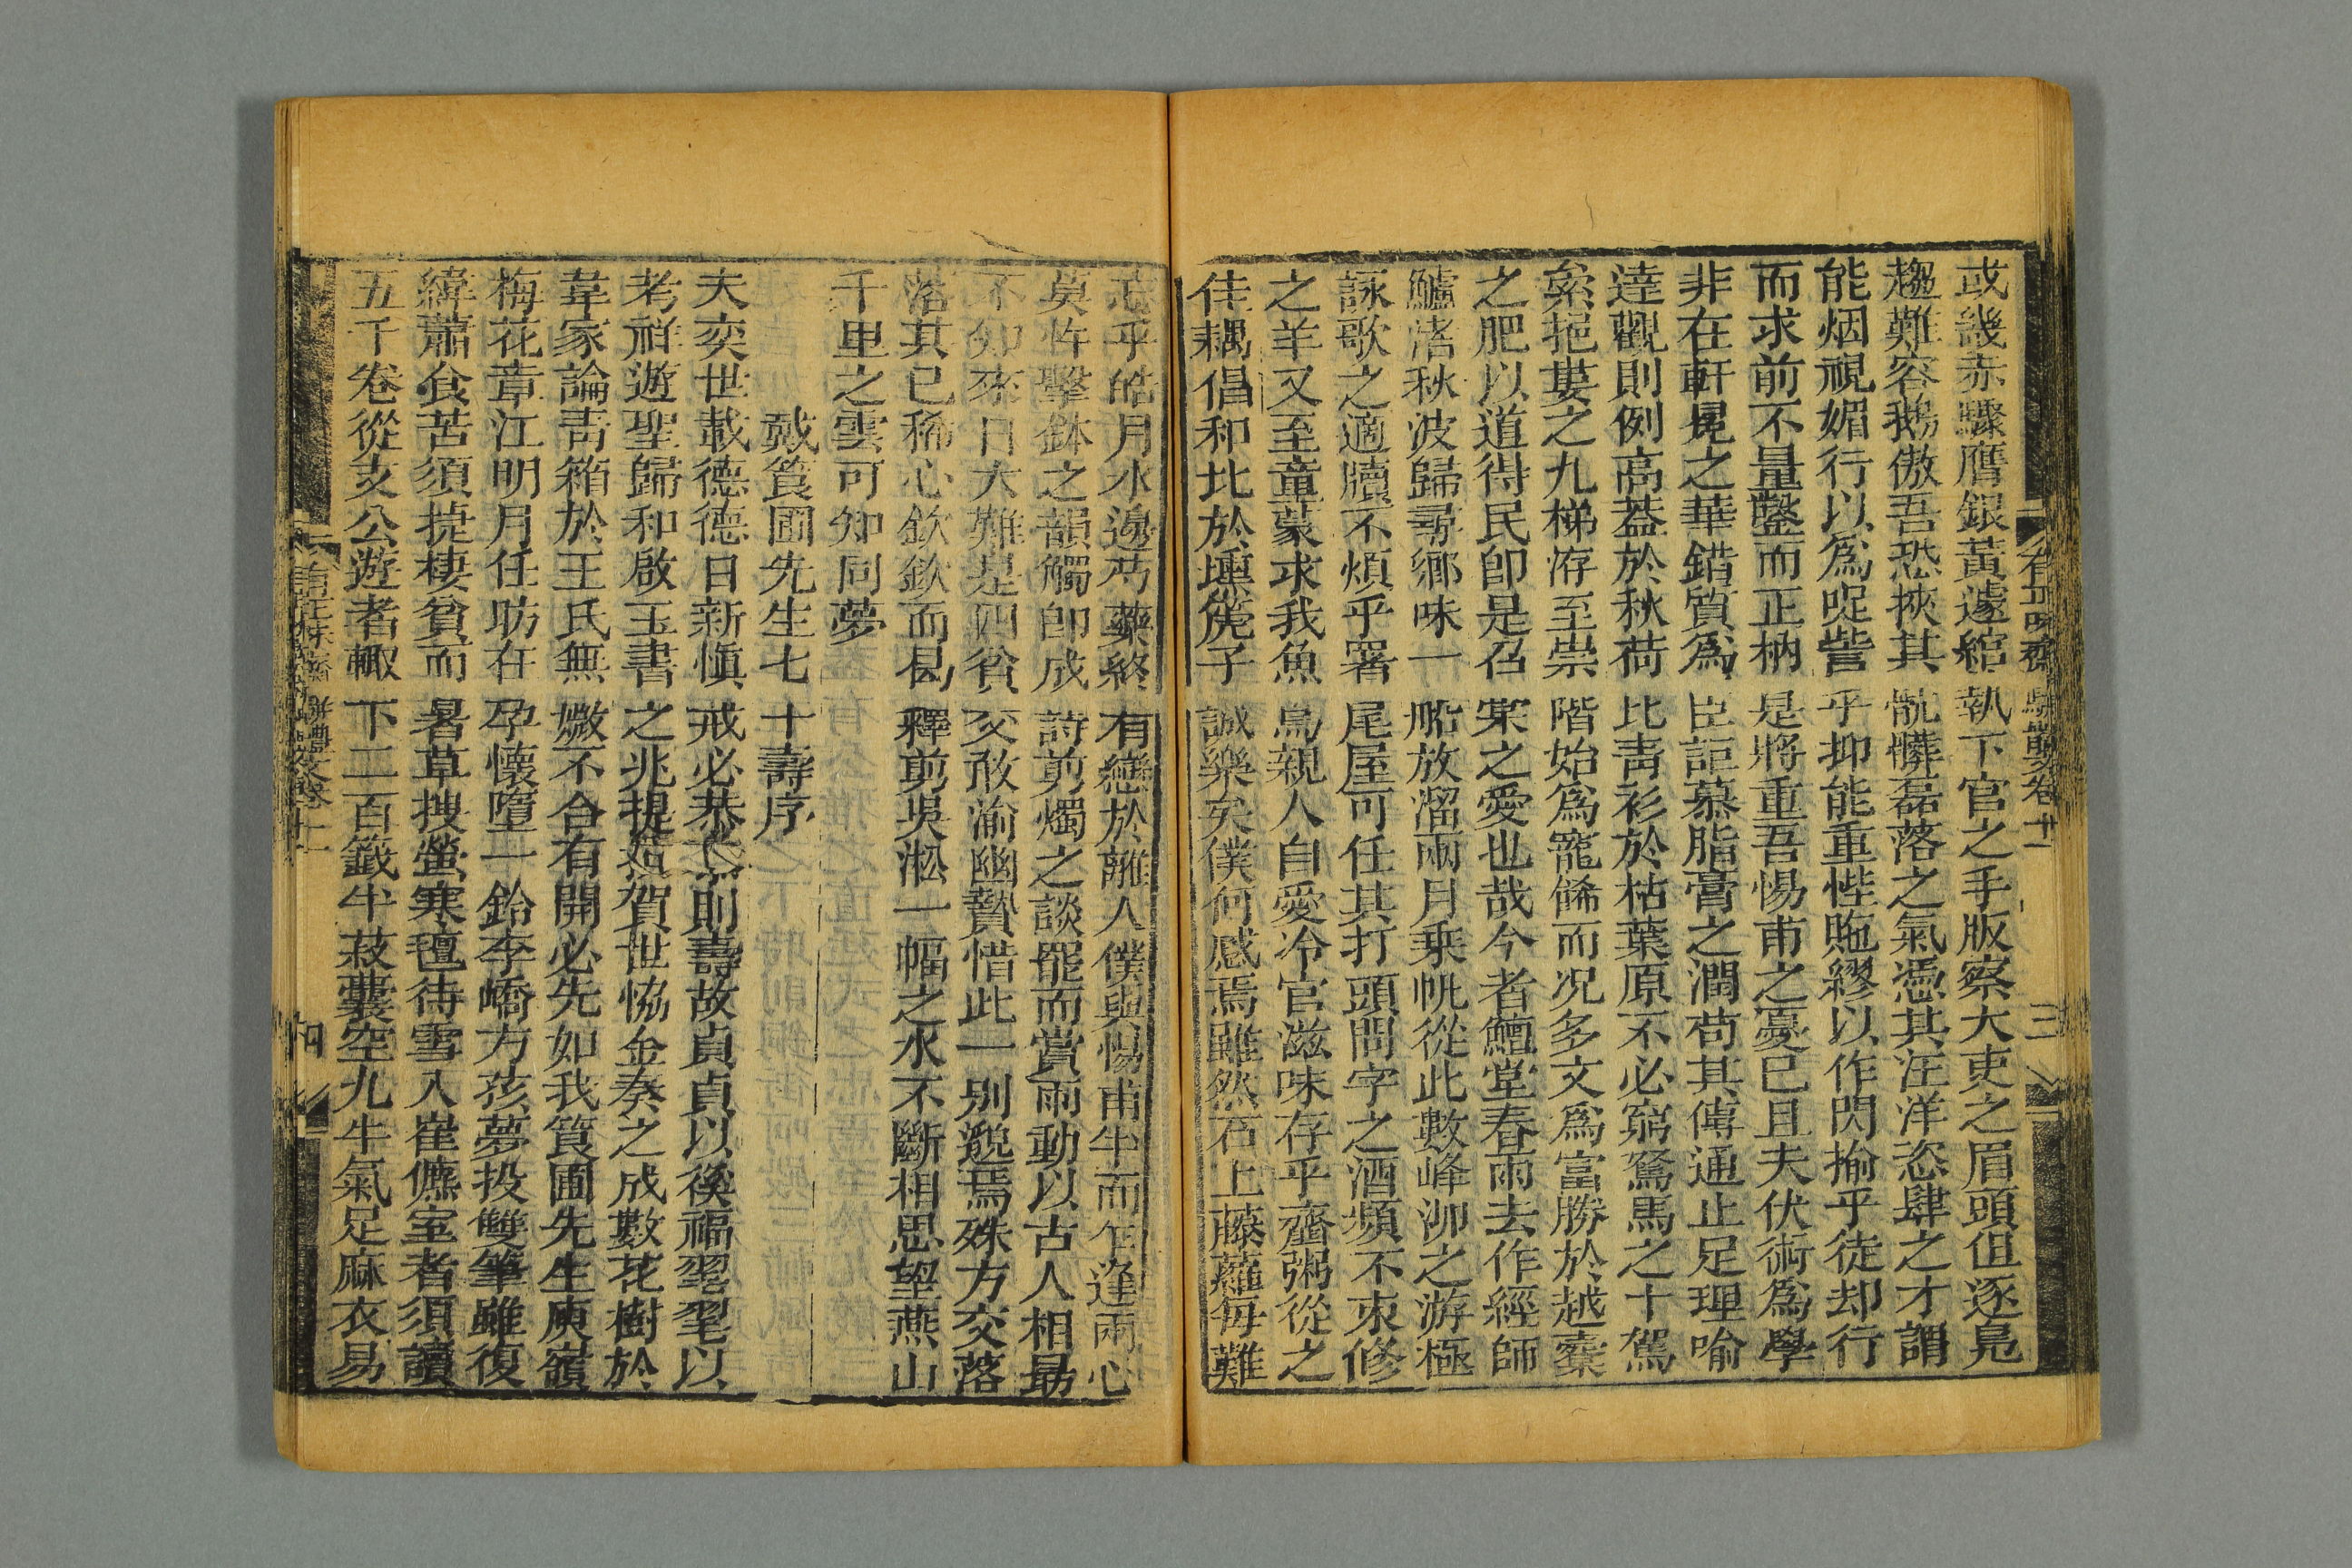 或幾赤驟膺銀黃遽綰執下官之手版察大吏之眉頭但逐鳧
趨難容鵝傲吾恐挾其骯髒磊落之氣憑其汪洋恣肆之才謂
能烟視媚行以爲哫訾乎抑能重悂貤繆以作閃揄乎徒却行
而求前不量鑿而正枘是將重吾惕甫之憂已且夫伏術爲學
非在軒冕之華錯質爲臣詎慕脂膏之潤苟其傳通止足理喻
達觀則例高蓋於秋荷比靑衫於枯葉原不必窮駑馬之十駕
絫挹婁之九梯洊至崇階始爲寵餙而况多文爲富勝於越橐
之肥以道得民卽是召棠之愛也哉今者鱣堂春雨去作經師
鱸渚秋波歸尋鄉味一船放溜兩月乗帆從此數峰泖之游極
詠歌之適牘不煩乎署尾屋可任其打頭問字之酒頻來修
之羊又至童蒙求我魚鳥親人自愛冷官滋味存乎齏粥從之
佳耦倡和比於壎箎子誠樂矣僕何感焉雖然石上藤蘿每難
忘乎皓月水邊芍藥終有戀於離人僕與惕甫半面乍逢兩心
莫忤擊鉢之韻觸卽成詩剪燭之談罷而賞雨動以古人相勗
不知來日大難是四貧交敢渝幽贄惜此一别邈焉殊方交落
落其已稀心欽欽而曷釋剪吳淞一幅之水不斷相思望燕山
千里之雲可知同夢
戴筤圃先生七十壽序
夫奕世載德德日新愼戒必恭恭則壽故貞貞以後福翣翣以
考祥遊聖歸和啟玉書之兆提 賀世恊金奏之成數花樹於
韋家論靑箱於王氏無媺不合有開必先如我筤圃先生庾嶺
梅花章江明月任昉在孕懷墮一鈴李嶠方孩夢投雙筆雖復
緯蕭食苦須捷棲貧而暑草搜螢寒氊待雪入崔儦室者須讀
五千卷從支公遊者輙下二百籤牛菽囊空九牛氣足麻衣易
有正味齋駢體文卷十一 三
有正味齋駢體文卷十一 四